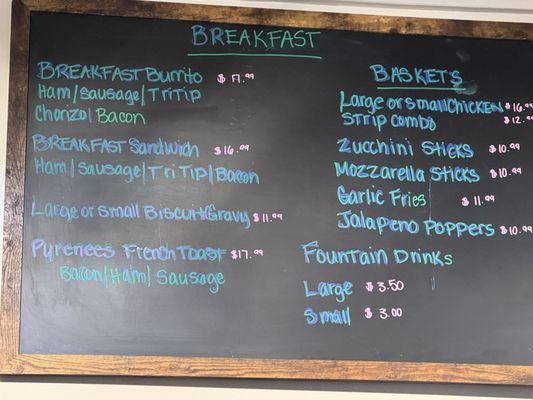 BREAKFAST
BREAKFAST Burrito $17.99
Ham/Sausage/TriTip
Chorizo/Bacon
BREAKFAST Sandwich $16.99
Ham/Sausage/Tri Tip/Bacon
Large or Small Biscuit/Gravy $11.99
Pyrenees French Toast $17.99
Bacon/Ham/Sausage
BASKETS
Large or small CHICKEN $16.99
Strip combo $12.99
Zucchini Sticks $10.99
Mozzarella Sticks $10.99
Garlic Fries $11.99
Jalapeno Poppers $10.99
Fountain Drinks
Large $3.50
Small $3.00